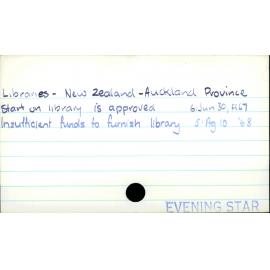 Libraries - New Zealand - Auckland Province
Start on library is approved 6:Jun 30, 1867
Insufficient funds to furnish library 5:Ag 10 '68
EVENING STAR